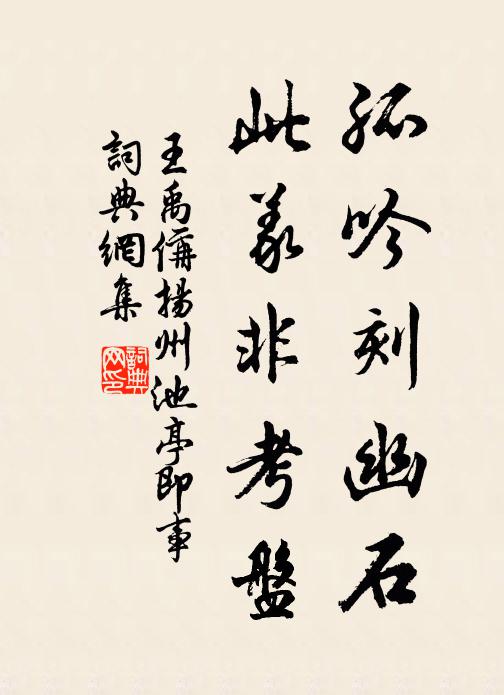 孤吟刻幽石
此義非考盤
王禹偁揚州池亭即事
詞典網集
詞典网印